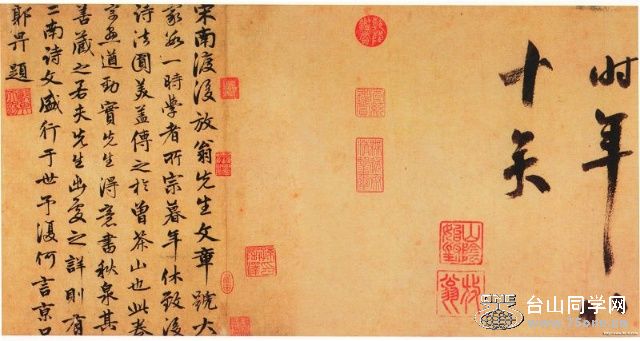 时年
十矣
放翁
宋南渡後放翁先生文章號大
家數一時學者所宗暮年休致後
詩法圓美蓋傳之於曾茶山也此卷
字畫遒勁實先生得意書秋泉其
善藏之若夫先生出處之詳則有
二南詩文盛行于世予復何言京口
郭畀題
台山同学网